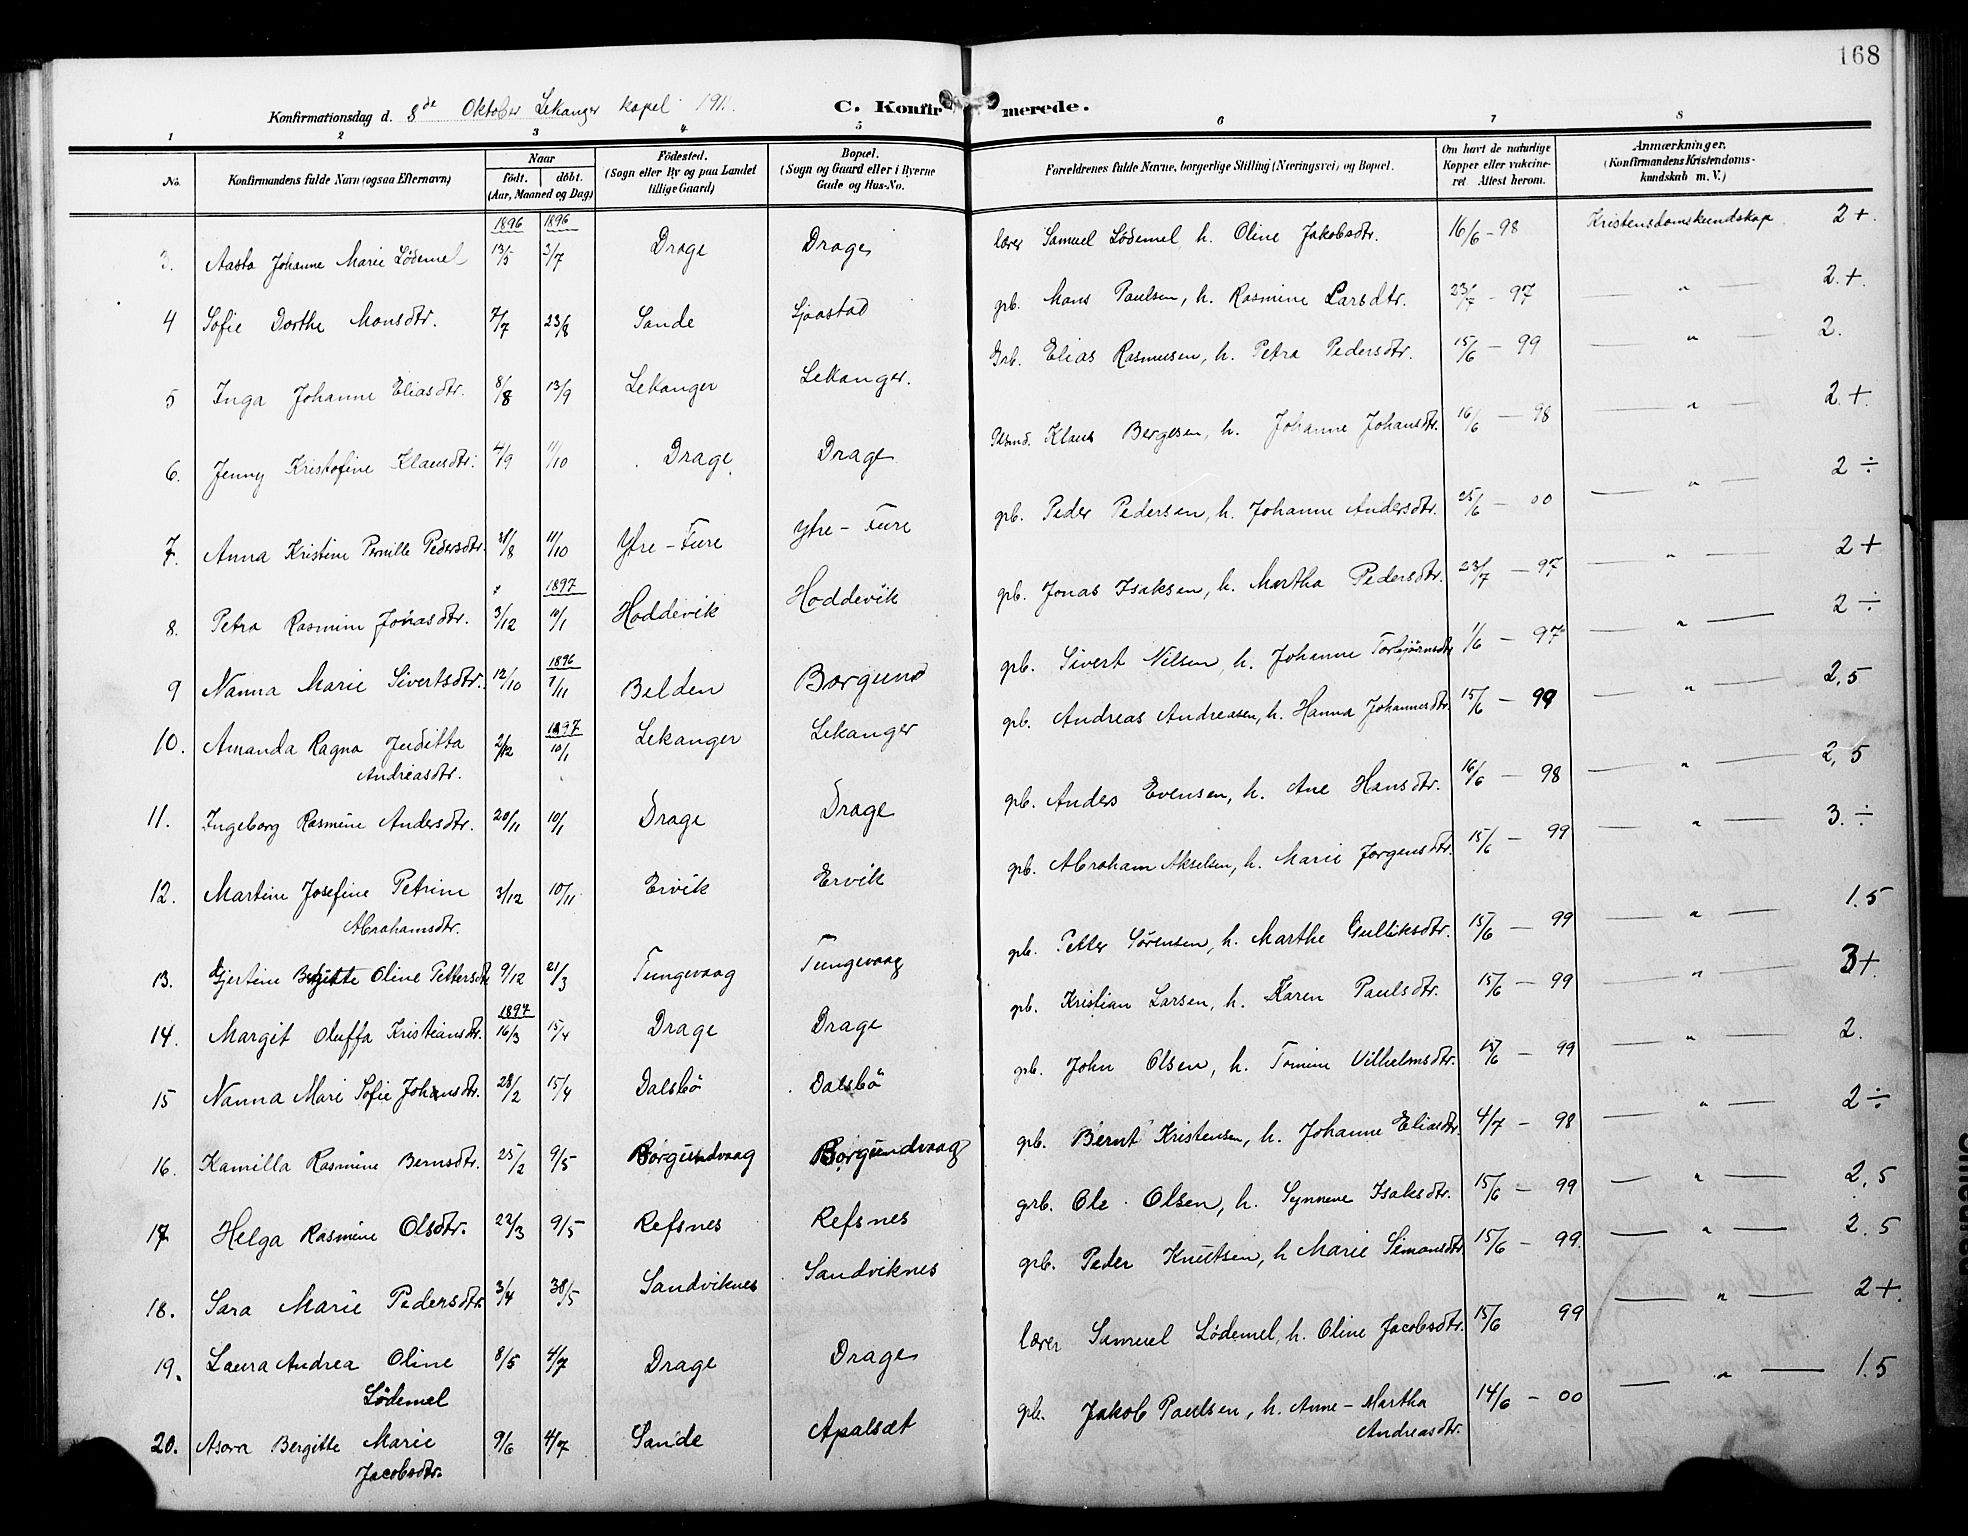 168
Konfirmationsdag d. 8de Oktober Lekanger kapel 191
C. Konfirmerede.
1 2 3 4 5 6 7 8
No. Konfirmandens fulde Navn (ogsaa Efternavn) Naar født. døbt. (Aar, Maaned og Dag) Fødested. (Sogn eller By og paa Landet tillige Gaard) Bopæl. (Sogn og Gaard eller i Byerne Gade og Hus-No. Forældrenes fulde Navne, borgerlige Stilling (Næringsvei) og Bopæl. Om havt de naturlige Kopper eller vakcineret Attest herom. Anmærkninger. (Konfirmandens Kristendomskundskab m. V.)
1896 1896
3. Aasta Johanne Marie Lødemel 13/5 3/7 Drage Drage lærer Samuel Lødemel, h. Oline Jakobsdtr. 16/6 - 98 Kristensdomskundskap 2+.
4 Sofie Dorthe Monsdtr. 7/7 23/8 Sande Sjaastad gb. Mons Paulsen, h. Rasmine Larsdtr. 23/7 - 97 — " — 2.+.
5 Inga Johanne Eliasdtr. 8/8 13/9 Lekanger Lekanger. Grb. Elias Rasmusen, h. Petra Pedersdtr. 15/6 - 99 — " — 2.
6. Jenny Kristofine Klausdtr. 4/9 11/10 Drage Drage Klaus Bergesen, h. Johanne Johansdtr. 16/6 - 98 — " — 2.+.
7. Anna Kristine Pernille Pedersdtr. 31/8 11/10 Ytre-Fure Ytre-Fure gb. Peder Pedersen, h. Johanne Andersdtr. 25/6 - 00 — " — 2 ÷
1897
8. Petra Rasmine Jonasdtr. 3/12 10/1 Hoddevik Hoddevik gb. Jonas Isaksen, h. Martha Pedersdtr. 23/7 - 97 — " — 2+
1896
9 Nanna Marie Sivertsdtr. 12/10 1/11 Belden Borgund gb. Sivert Nilsen, h. Johanne Torbjørnsdtr 1/6 - 97 — " — 2 ÷
1897
10. Amanda Ragna Juditta 2/12 10/1 Lekanger Lekanger gb. Andreas Andreasen, h. Hanna Johannesdtr. 15/6 - 99 — " — 2,5
Andreasdtr.
11. Ingeborg Rasmine Andersdtr. 20/11 10/1 Drage Drage gb. Anders Evensen, h. Ane Hansdtr. 16/6 - 98 — " — 2,5
12. Martine Josefine Petrine 3/12 10/11 Ervik Ervik gb. Abraham Akselsen, h. Marie Jørgensdtr. 15/6 - 99 — " — 3. ÷
Abrahamsdtr.
13. Gjertine Oline Pettersdtr 9/12 21/3 Tungevaag Tungevaag gb. Petter Sørensen, h. Marthe Gulliksdtr. 15/6 - 99 — " — 1.5
1897
14. Margit Oluffa Kristiansdtr. 16/3 15/4 Drage Drage gb. Kristian Larsen, h. Karen Paulsdtr. 15/6 - 99 — " — 3+.
15 Nanna Mari Sofie Johansdtr. 28/2 15/4 Dalsbø Dalsbø gb. John Olsen, h. Tomine Vilhelmsdtr. 15/6 - 99 — " — 2.
16. Kamilla Rasmine Bernsdtr. 25/2 9/5 Borgundvaag Borgundvaag gb. Bernt Kristensen, h. Johanne Eliasdtr. 4/7 - 98 — " — 2 ÷
17 Helga Rasmine Olsdtr. 22/3 9/5 Refsnes Refsnes grb. Ole Olsen, h. Synneve Isaksdtr. 15/6 - 99 — " — 2,5
18. Sara Marie Pedersdtr 3/4 30/5 Sandviknes Sandviknes grb. Peder Knutsen, h Marie Simonsdtr 15/6 - 99. — " — 2.5
19. Laura Andrea Oline 8/5 4/7 Drage Drage lærer Samuel Lødemel, h. Oline Jacobsdtr. 15/6 99 — " — 2+.
Lødemel
20. Asora Bergitte Marie 9/6 4/7 Sande Apalsæt gb. Jakob Paulsen, h. Anne-Martha 14/6 - 00 — " — 1.5
Jacobsdtr. Andreasdtr.